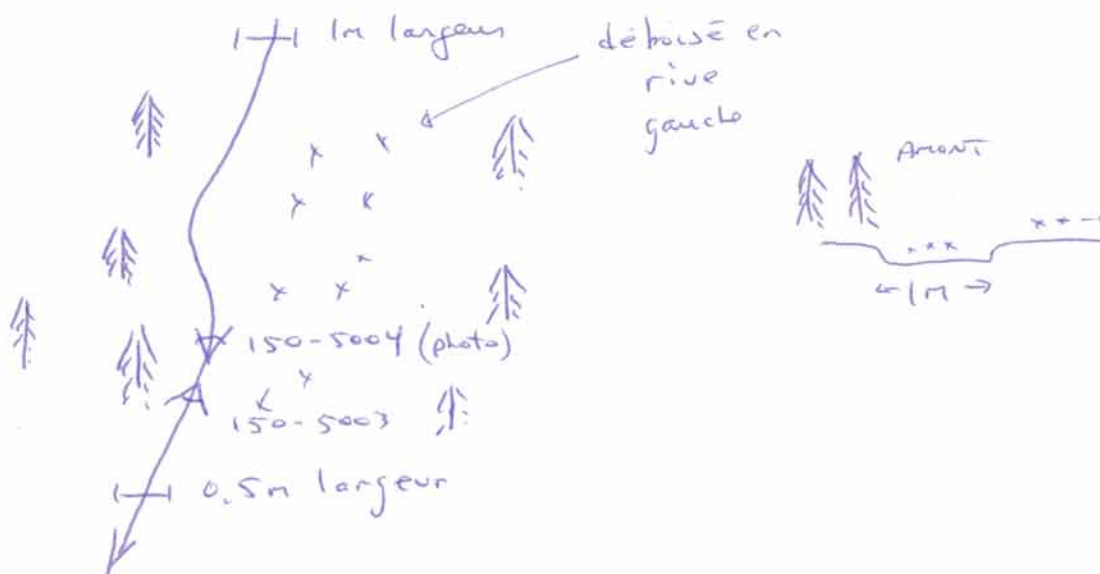 1m largeur
déboisé en
rive
gauche
AMONT
1M
150-5004 (photo)
150-5003
0.5m largeur